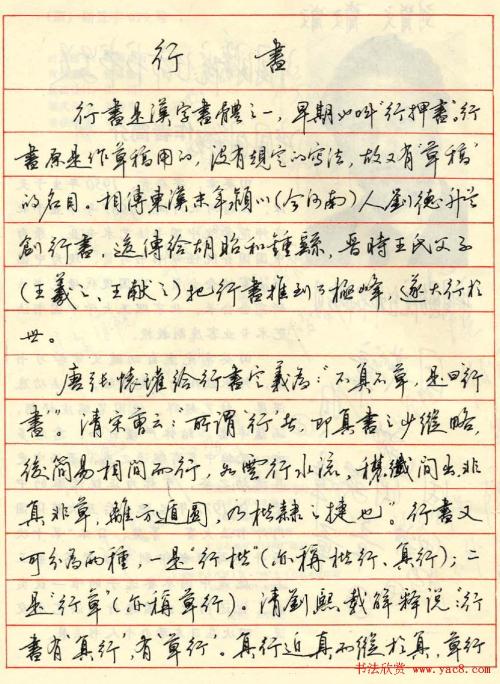 行 書
行書是漢字書體之一，早期必叫“行押書”。行
書原是作草稿用的，没有規定的寫法，故又有“草稿”
的名目。相傳東漢末年潁川（今河南）人劉德升首
創行書，遂傳給胡昭和鍾繇，晋時王氏父子
（王羲之、王献之）把行書推到了極峰，遂大行於
世。
唐張懷瓘給行書定義為：“不真不草，是曰行
書”。清宋曹云：“所謂‘行’者，即真書之少縱略，
後簡易相間而行，如雲行水流，穠纖間出，非
真非草，離方遁圓，乃楷隸之捷也”。行書又
可分為兩種，一是“行楷”（亦稱楷行、真行）；二
是“行草”（亦稱草行）。清劉熙載解釋說：“行
書有真行，有‘草行’。真行近真而縱於真，草行
书法欣赏 www.yac8.com